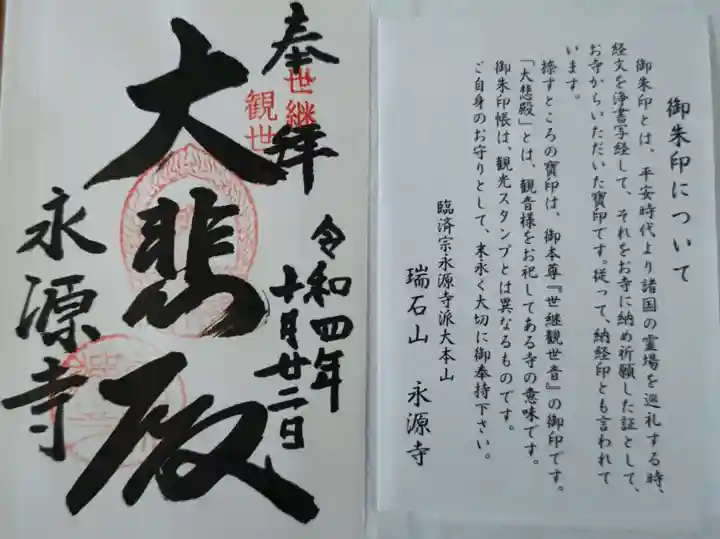 御朱印について
御朱印とは、平安時代より諸国の霊場を巡礼する時、
経文を浄書写経して、それをお寺に納め祈願した証として、
お寺からいただいた寶印です。従って、納経印とも言われて
います。
捺すところの寶印は、御本尊『世継観世音』の御印です。
「大悲殿」とは、観音様をお祀してある寺の意味です。
御朱印帳は、観光スタンプとは異なるものです。
ご自身のお守りとして、末永く大切に御奉持下さい。
臨済宗永源寺派大本山
瑞石山 永源寺
奉拝
世継
観世
令和四年
十月廿二日
大悲殿
永源寺